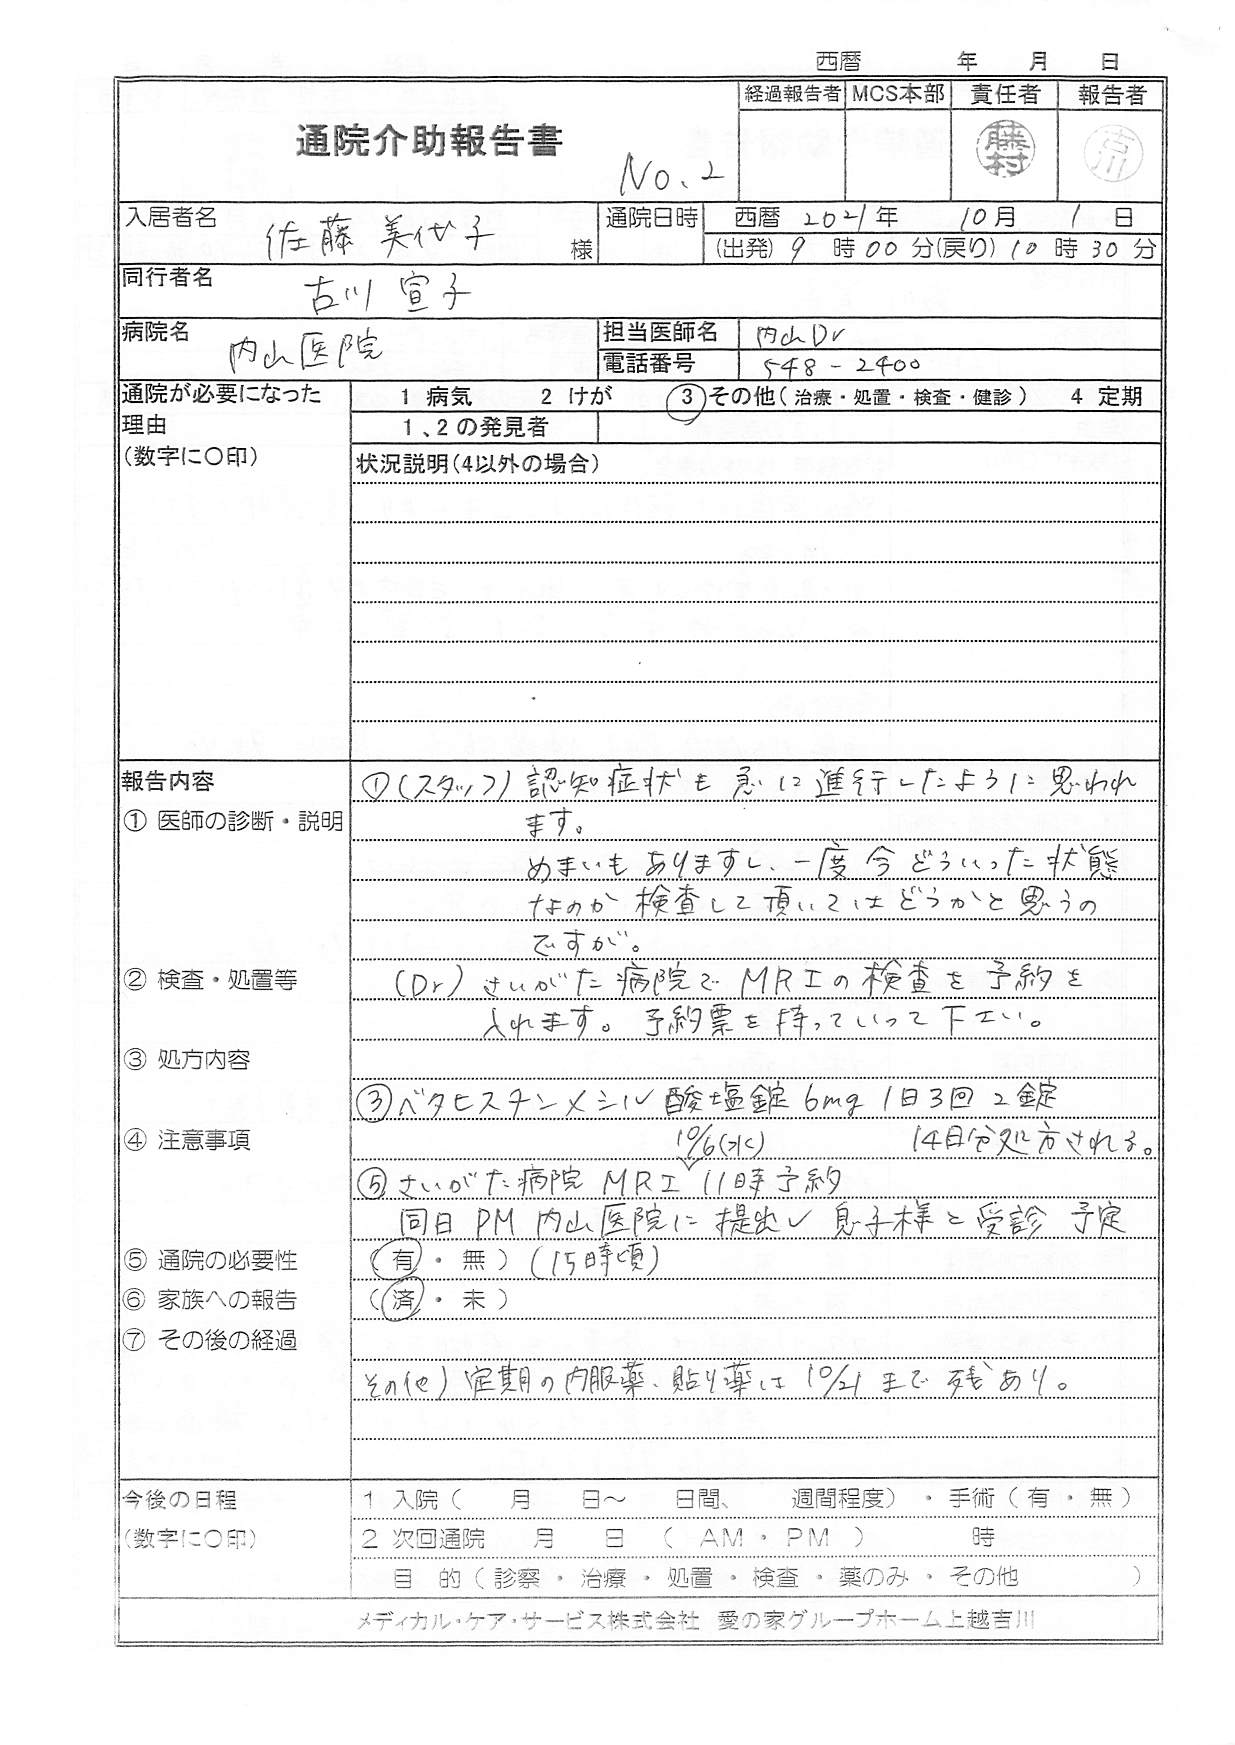 西暦 年 月 日
経過報告者 MCS本部 責任者 報告者
通院介助報告書
No.2
藤村 古川
入居者名 佐藤 美代子 様
通院日時 西暦 2021年 10月 1日
(出発) 9時00分(戻り)10時30分
同行者名 古川 宣子
病院名 内山医院
担当医師名 内山Dr
電話番号 548-2400
通院が必要になった理由
(数字に〇印)
1 病気 2 けが ③その他(治療・処置・検査・健診) 4 定期
1、2の発見者
状況説明(4以外の場合)
報告内容
① 医師の診断・説明
①(スタッフ)認知症状も急に進行したように思われ
ます。
めまいもありますし、一度今どういった状態
なのか検査して頂いてはどうかと思うの
ですが。
② 検査・処置等
(Dr)さいがた病院でMRIの検査を予約を
入れます。予約票を持っていって下さい。
③ 処方内容
③ベタヒスチンメシル酸塩錠 6mg 1日3回 2錠
14日分処方される。
④ 注意事項
10/6(水)
⑤さいがた病院 MRI 11時予約
同日 PM 内山医院に提出し 息子様と受診 予定
⑤ 通院の必要性 (有・無)(15時頃)
⑥ 家族への報告 (済・未)
⑦ その後の経過
その他)定期の内服薬、貼り薬は10/21まで残あり。
今後の日程
(数字に〇印)
1 入院( 月 日～ 日間、 週間程度)・手術(有・無)
2 次回通院 月 日 (AM・PM) 時
目 的(診察・治療・処置・検査・薬のみ・その他 )
メディカル・ケア・サービス株式会社 愛の家グループホーム上越吉川